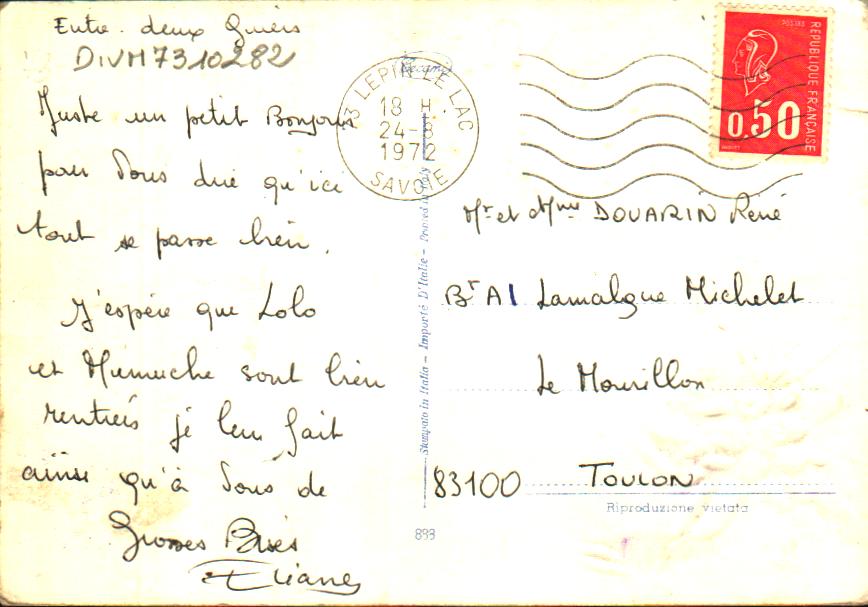 Entre-deux Guiers
DIVM7310282
Juste un petit Bonjour
pour Vous dire qu'ici
tout se passe bien.
J'espère que Lolo
et Mimuche sont bien
rentrés je leur fait
ainsi qu'à Vous de
Grosses Bises
Eliane
73 LEPIN LE LAC
18 H.
24-8
1972
SAVOIE
Stampato in Italia - Importé D'Italie - Printed in Italy
898
POSTES
REPUBLIQUE FRANÇAISE
0.50
Mr et Mme DOUARIN René
Bt A1 Lamalgue Michelet
Le Mourillon
83100 TOULON
Riproduzione vietata